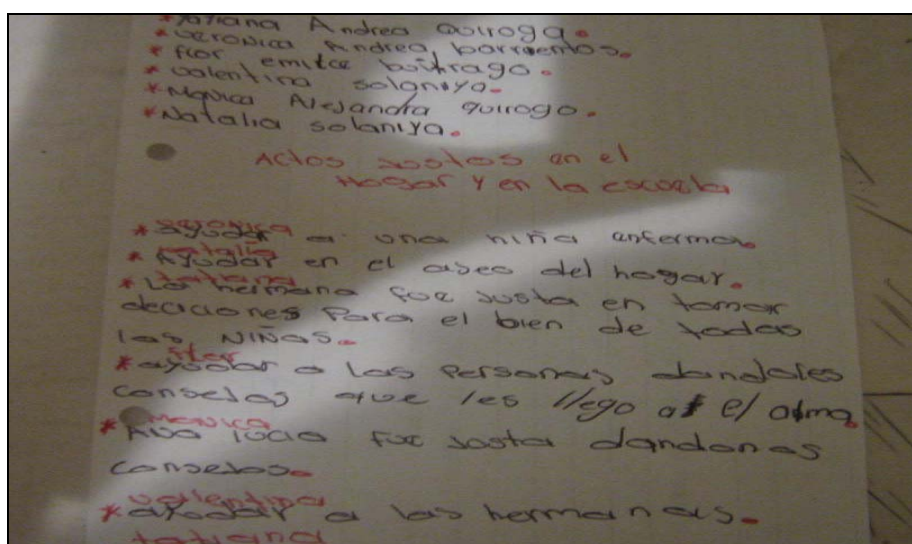 *Tatiana Andrea Quiroga.
*veronica Andrea barrientos.
*flor emilce buitrago.
*valentina solaniya.
*Monica Alejandra quirogo.
*Natalia solaniya.
Actos Justos en el
Hogar Y en la escuela
veronica
*ayudar a una niña enferma.
natalia
*Ayudar en el aseo del hogar.
tatiana
*La hermana fue Justa en tomar
deciciones Para el bien de todas
las NIÑas.
flor
*ayudar a las Personas dandoles
conseJos que les llego a el alma.
Monica
* lucia fue Justa dandonos
conseJos.
vallentina
*ayudar a las hermanas.
tatiana